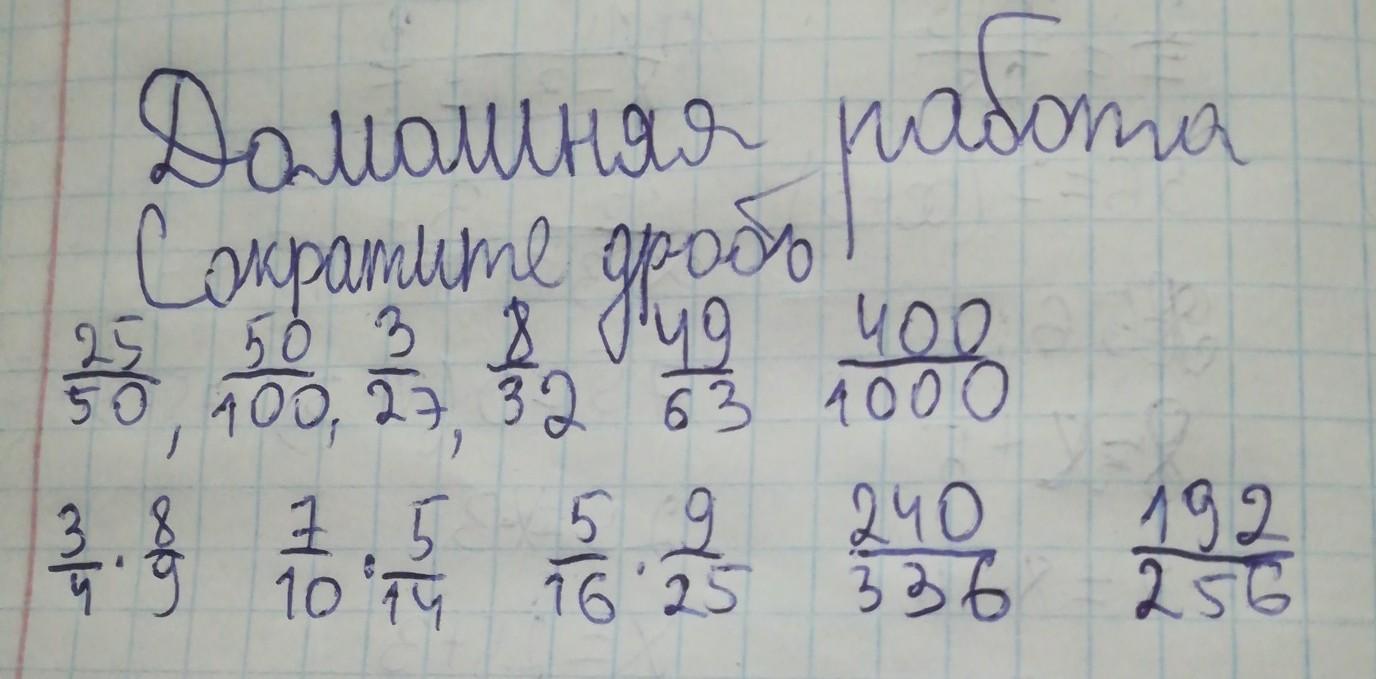 Домашняя работа
Сократите дробь
25/50, 50/100, 3/27, 8/32 49/63 400/1000
3/4 · 8/9 7/10 · 5/14 5/16 · 9/25 240/336 192/256